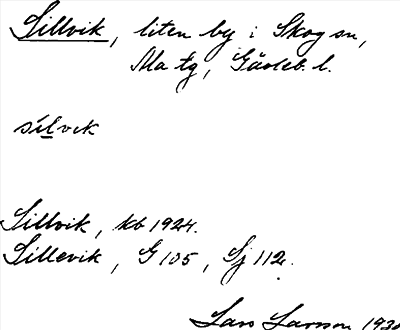 Sillvik, liten by i Skog sn,
Ala tg, Gävleb. l.
sílvik
Sillvik, kb 1924.
Sillevik, G 105, Sj 112.
Lars Larsson 193